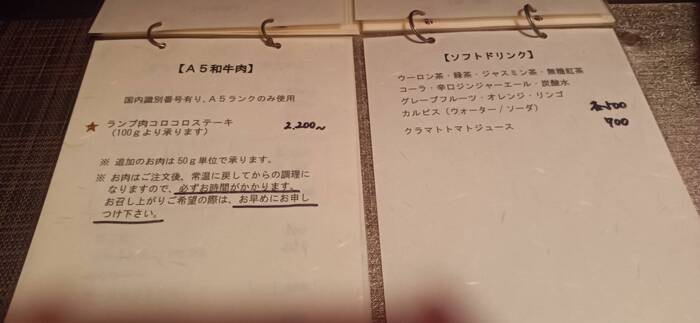 【Ａ５和牛肉】
国内識別番号有り、Ａ５ランクのみ使用
★ ランプ肉コロコロステーキ 2,200~
(100gより承ります)
※ 追加のお肉は50g単位で承ります。
※ お肉はご注文後、常温に戻してからの調理に
なりますので、必ずお時間がかかります。
お召し上がりご希望の際は、お早めにお申し
つけ下さい。
【ソフトドリンク】
ウーロン茶・緑茶・ジャスミン茶・無糖紅茶
コーラ・辛口ジンジャーエール・炭酸水
グレープフルーツ・オレンジ・リンゴ
カルピス(ウォーター/ソーダ) 各500
クラマトトマトジュース 700